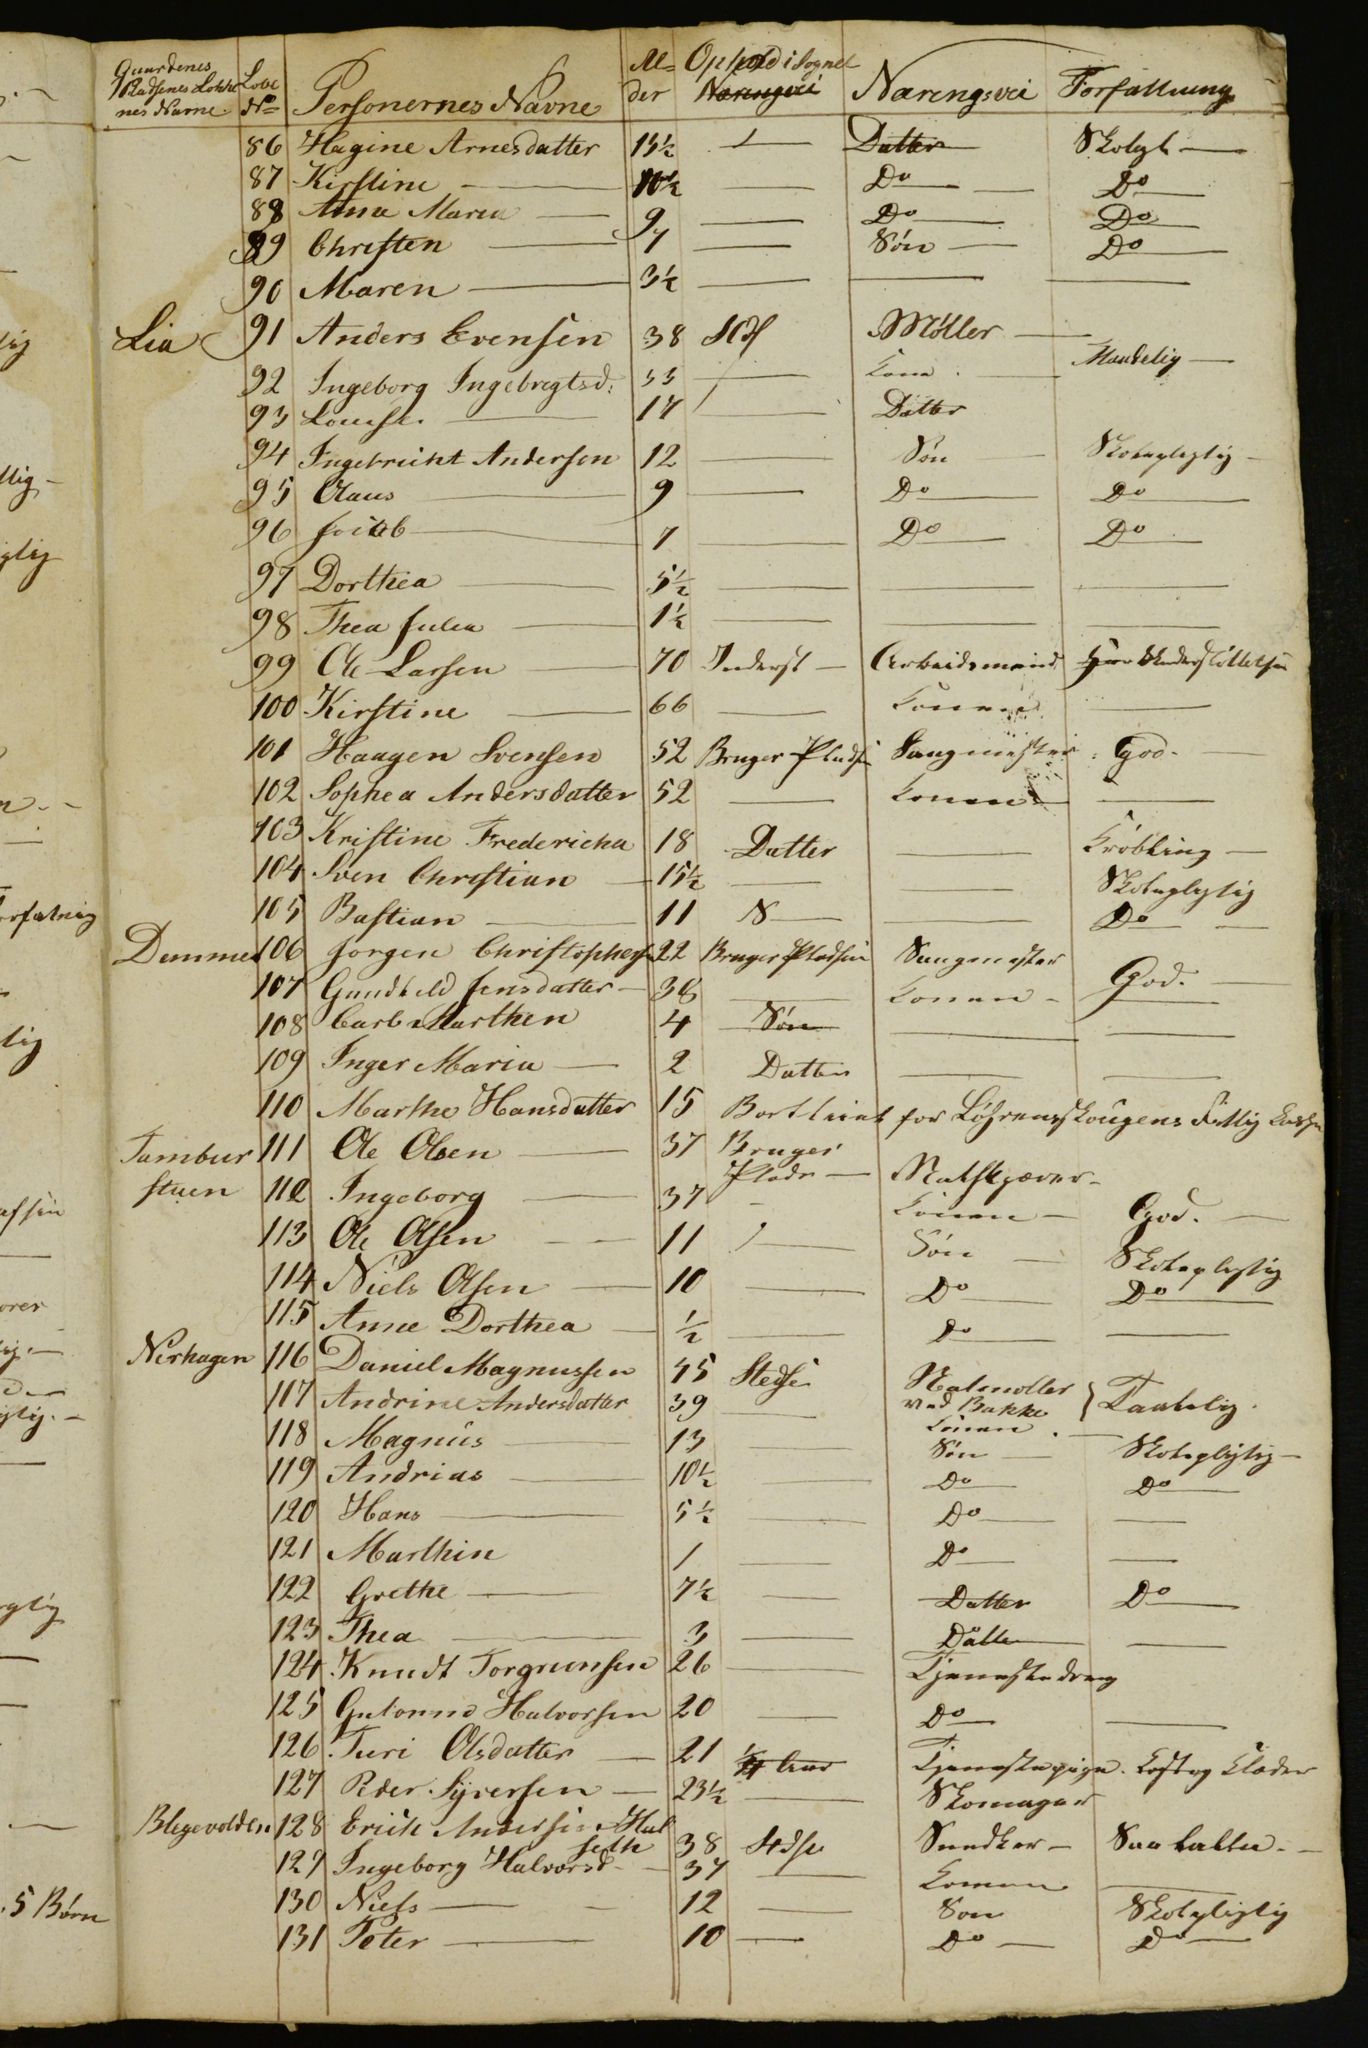 Gaardenes Pladsenes Løkkenes Navne | Løbe No | Personernes Navne | Alder | Ophold i Sognet | Næringsvei | Forfattning
86 Hagine Arnesdatter 13½ — Datter Skoleplt —
87 Kirstine — 10½ — Do — Do
88 Anne Maria — 9 — Do — Do
89 Christen — 7 — Søn — Do
90 Maren — 3½ — — —
Lia 91 Anders Evensen 38 Møller —
92 Ingeborg Ingebregtsd: 33 — Kone. Maadelig —
93 Louise. — 14 — Datter
94 Ingebricht Andersen 12 — Søn Skolepligtig —
95 Olaus — 9 — Do — Do
96 Jacob — 7 — Do — Do
97 Dorthea — 5½ — — —
98 Thea Julia — 1½ — — —
99 Ole Larsen — 70 Inderst — Arbeidsmand Understøttelse
100 Kirstine — 66 — Konen —
101 Haagen Svensen 52 Bruger Pladsen Saugmester God. —
102 Sophea Andersdatter 52 — Konen —
103 Kristine Fredericha 18 Datter — Krøbling —
104 Sven Christian — 15½ — — Skolepligtig
105 Bastian — 11 S — — Do —
Dammen 106 Jørgen Christophersen 22 Bruger Pladsen Saugmester
107 Gundhild Jensdatter — 38 — Konen — God. —
108 Carl Marthen 4 Søn — —
109 Inger Maria — 2 Datter — —
110 Marthe Hansdatter 15 Bortleiet for Löhrenskougens Fattig Kasse
Tamburstuen 111 Ole Olsen — 37 Bruger Plads — Natskjærer —
112 Ingeborg — 37 - Konen — God. —
113 Ole Olsen — 11 — Søn — Skolepligtig
114 Niels Olsen — 10 — Do — Do
115 Anne Dorthea — ½ — Do —
Nerhagen 116 Daniel Magnussen 45 Stedse Malmøller ved Bakke } Taalelig.
117 Andrine Andersdatter 39 — Konen. —
118 Magnus — 13 — Søn — Skolepligtig —
119 Andrias — 10½ — Do — Do
120 Hans — 5½ — Do — —
121 Marthin 1 — Do — —
122 Grethe — 7½ — Datter Do
123 Thea — 3 — Datter —
124 Knudt Torgrimsen 26 — Tjenestedreng
125 Halvorsen 20 — Do — —
126 Turi Olsdatter — 21 ¼ Aar Tjenestepige. Kost og Klæder
127 Peder Syversen — 23½ — Skomager
Blegevolden 128 Erick Andersen Halseth 38 Stdse Snedker — Saa
129 Ingeborg Halvorsd — 37 — Konen —
130 Niels — 12 — Søn Skolepligtig
131 Peter — 10 — Do — Do
. 5 Børn